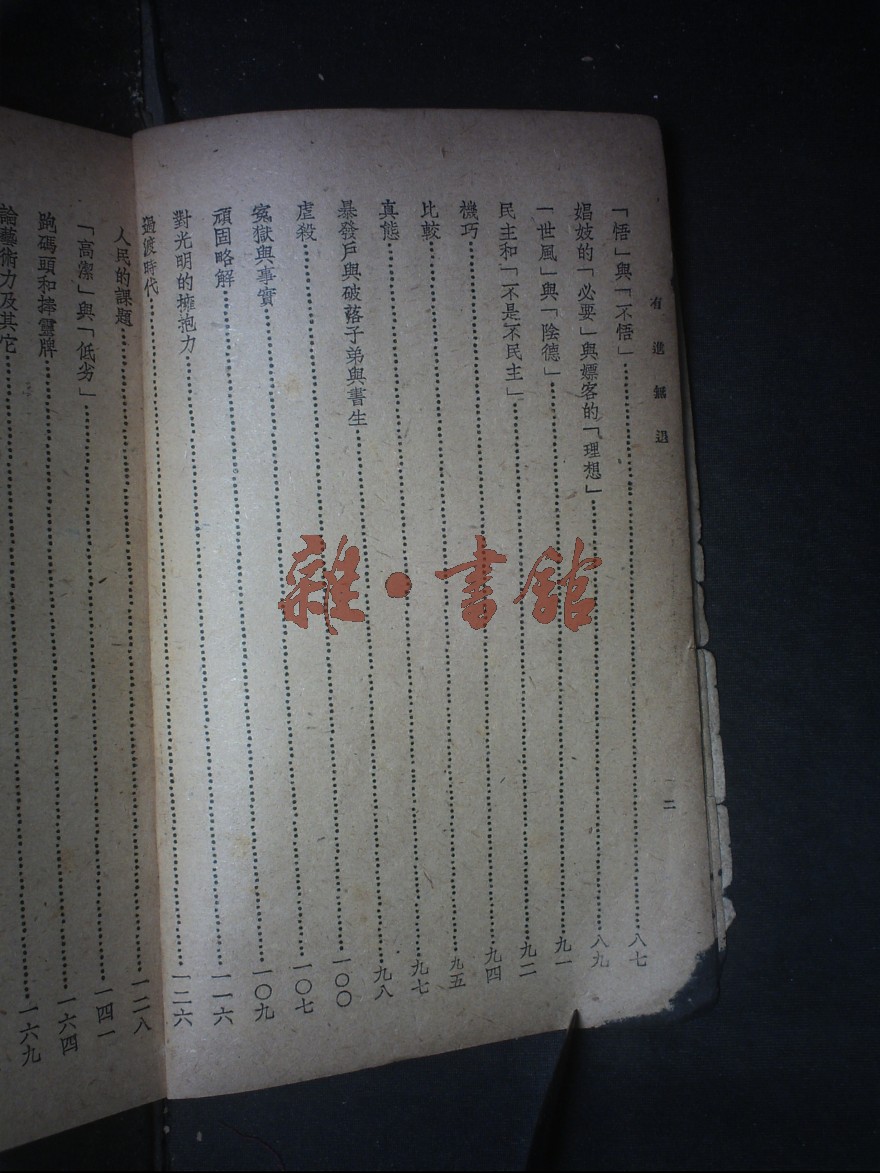 有進無退
二
「悟」與「不悟」……八七
娼妓的「必要」與嫖客的「理想」……八九
「世風」與「陰德」……九一
民主和「不是不民主」……九二
機巧……九四
比較……九五
真態……九七
暴發戶與破落子弟與書生……九八
虐殺……一〇〇
冤獄與事實……一〇七
頑固略解……一〇九
對光明的擁抱力……一一六
過渡時代……一二六
人民的課題……一二八
「高潔」與「低劣」……一四一
跑碼頭和捧靈牌……一六四
論藝術力及其它……一六九
雜·書館